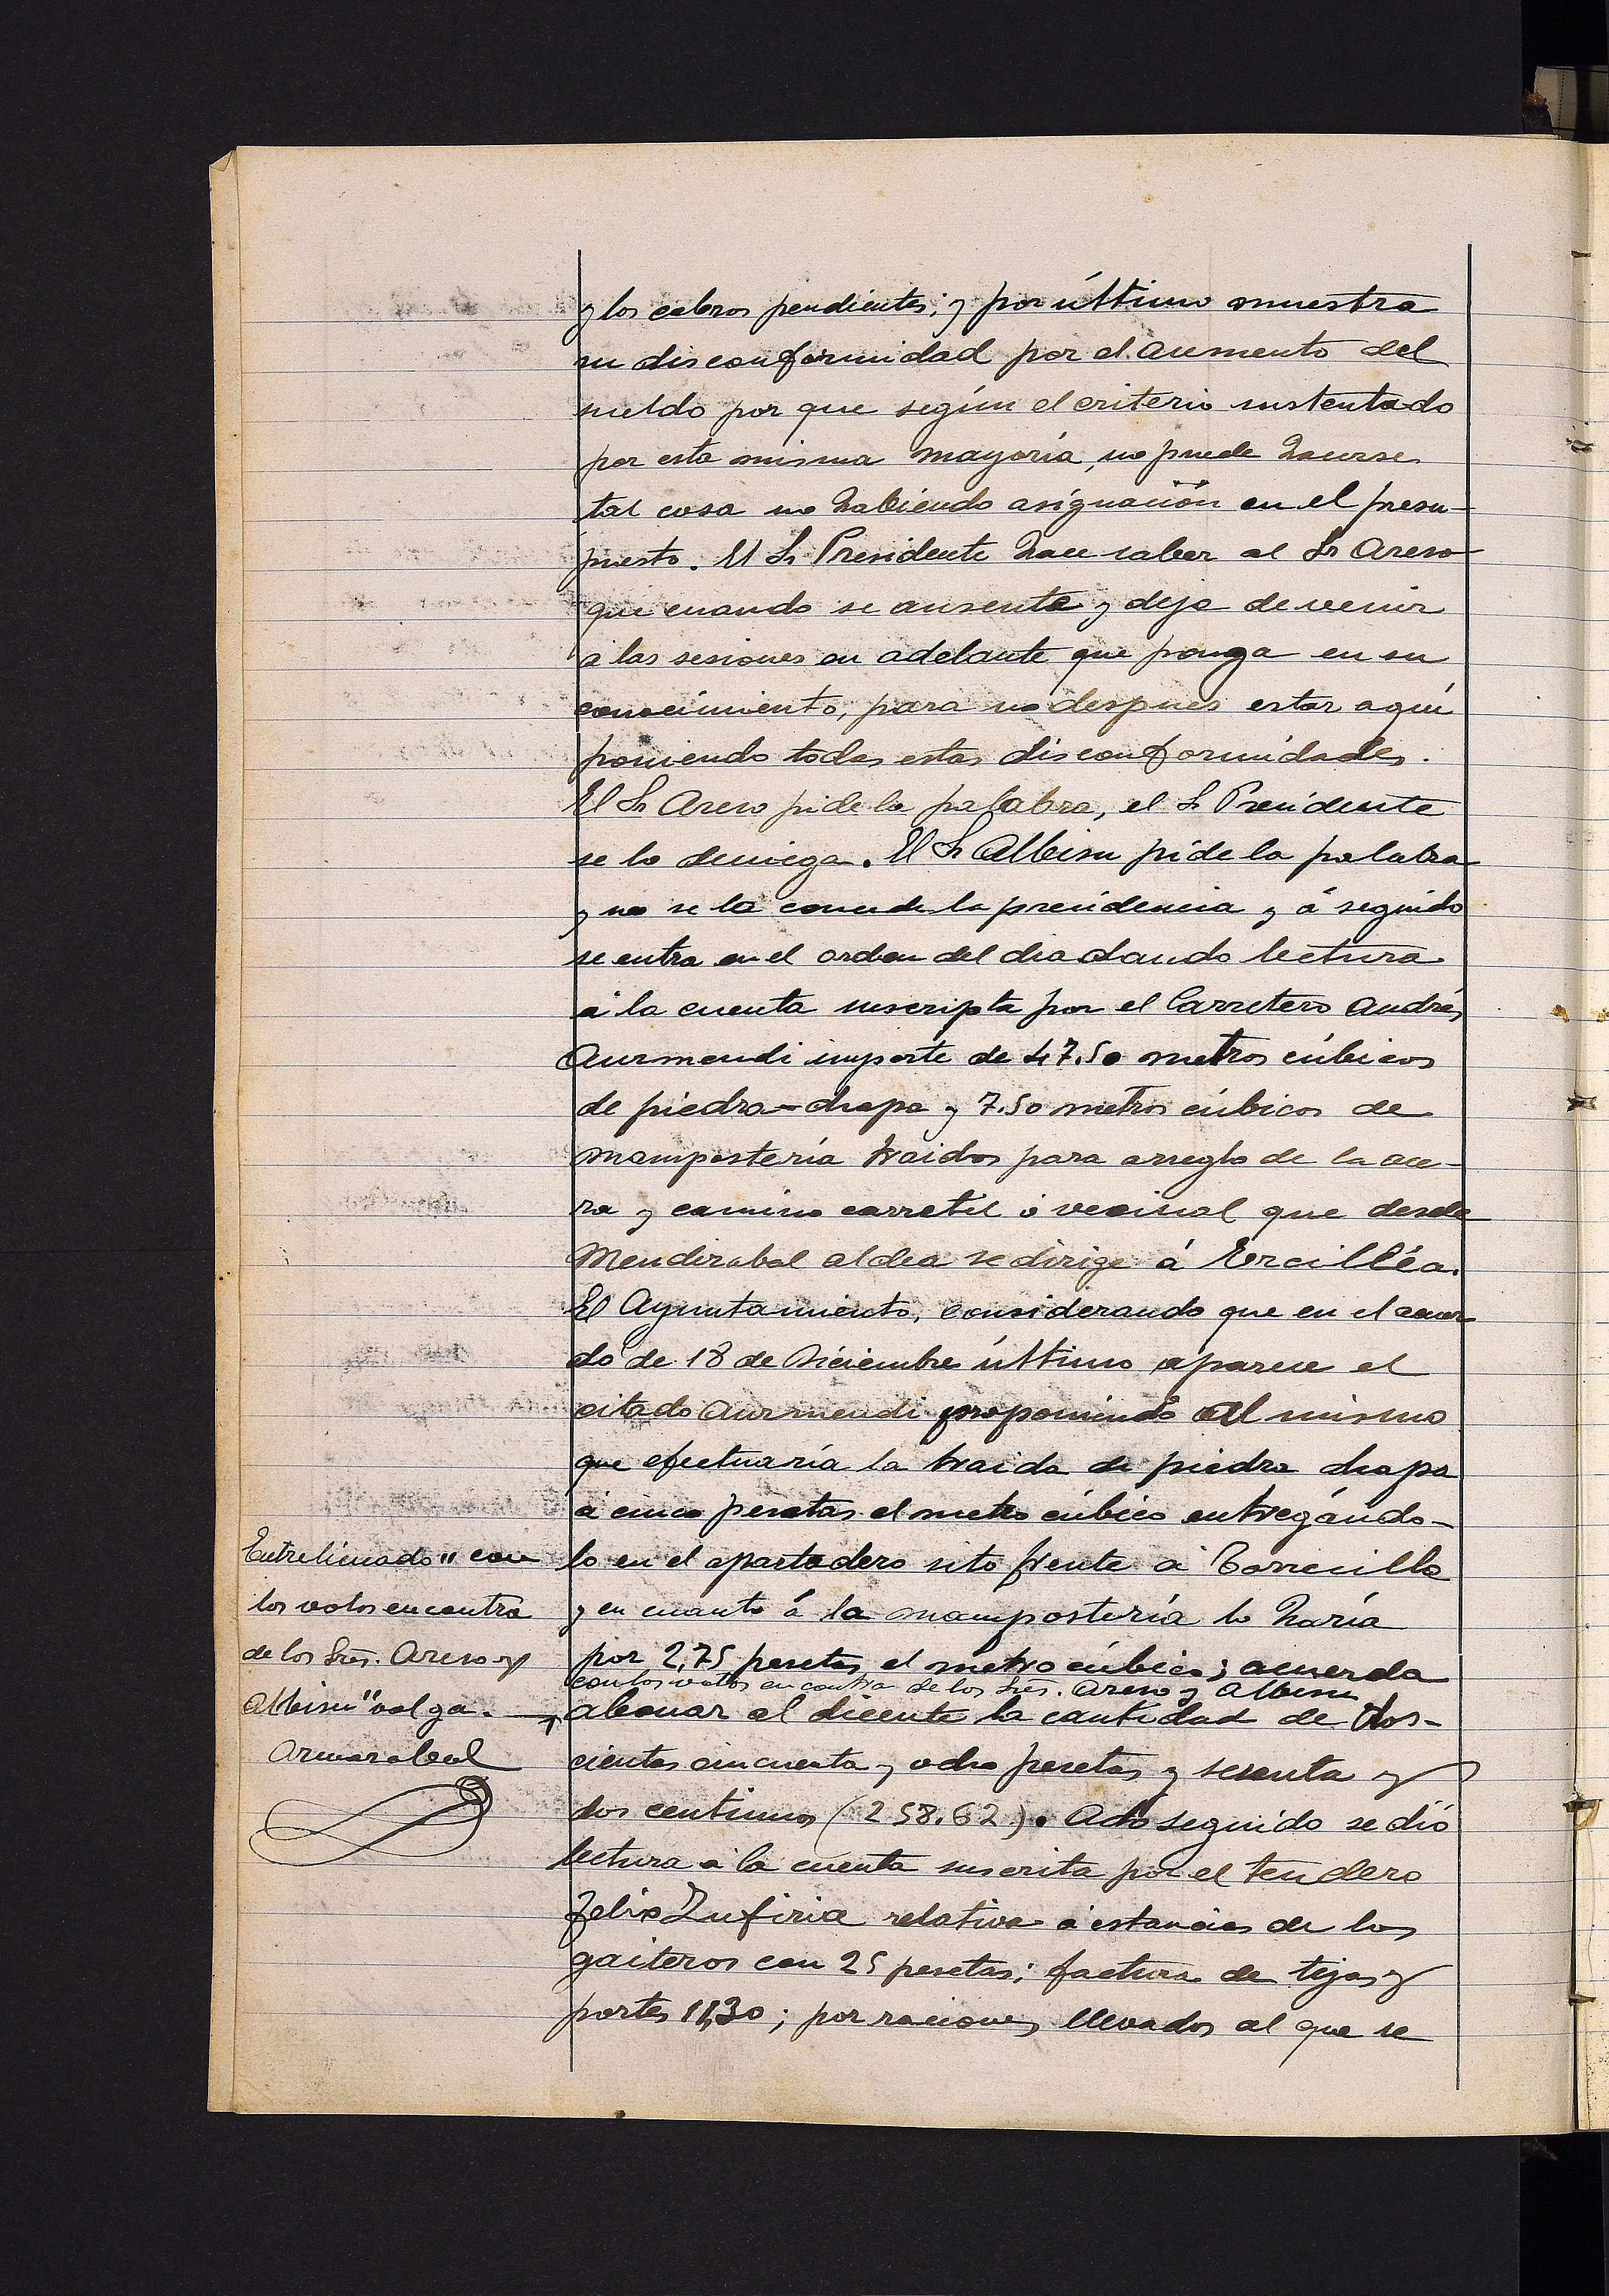 y los cobros pendientes; y por último muestra
su disconformidad por el aumento del
sueldo por que según el criterio sustentado
por esta misma mayoría, no puede hacerse
tal cosa no habiendo asignación en el presu-
puesto. El Sr Presidente hace saber al Sr Areso
que cuando se ausente y deje de venir
á las sesiones en adelante que ponga en su
conocimiento, para no después estar aquí
poniendo todas estas disconformidades.
El Sr Areso pide la palabra, el Sr Presidente
se lo deniega. El Sr Albisu pide la palabra
y no se la concede la presidencia y á seguido
se entra en el orden del dia dando lectura
á la cuenta suscripta por el Carretero Andrés
Aurmendi importe de 47.50 metros cúbicos
de piedra-chapa y 7.50 metros cúbicos de
mampostería traidos para arreglo de la ace-
ra y camino carretil ó vecinal que desde
Mendizabal aldea se dirige á Ercilléa.
El Ayuntamiento, considerando que en el acuer
do de 18 de Diciembre último aparece el
citado Aurmendi proponiendo al mismo
que efectuaría la traida de piedra chapa
á cinco pesetas el metro cúbico entregándo-
lo en el apartadero sito frente á Torrecilla
y en cuanto á la mampostería lo haría
por 2,75 pesetas el metro cúbico; acuerda
con los votos en contra de los Sres. Areso y Albisu
abonar al dicente la cantidad de dos-
cientas cincuenta y ocho pesetas y sesenta y
dos centimos (258.62). Acto seguido se dió
lectura á la cuenta suscrita por el tendero
Felix Zufiria relativa á estancias de los
gaiteros con 25 pesetas; factura de tejas y
portes 11,30; por raciones llevados al que se
Entrelineado "con
los votos en contra
de los Sres. Areso y
Albisu" valga.
Armarabal